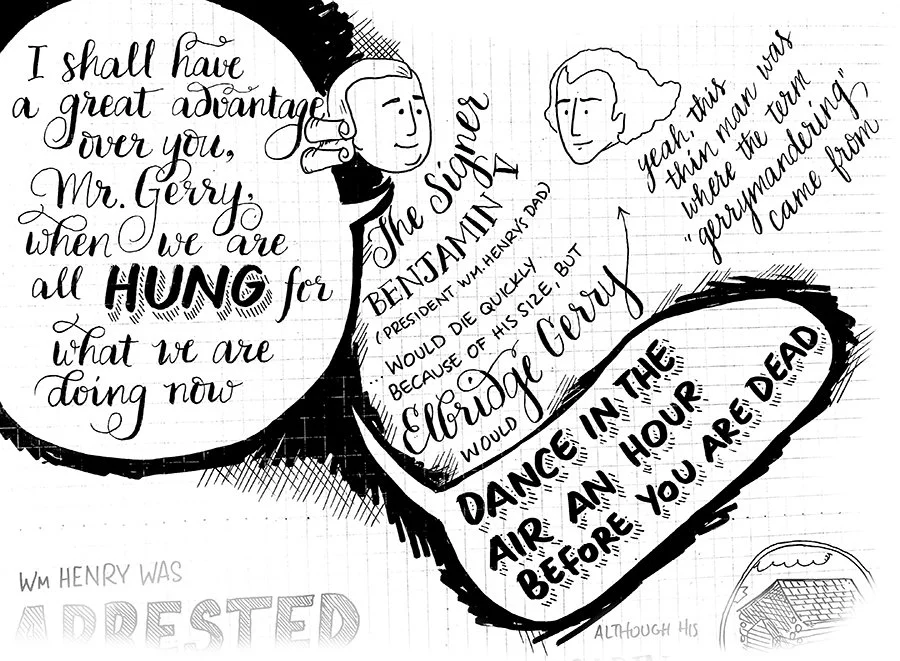 I shall have
a great advantage
over you,
Mr. Gerry,
when we are
all HUNG for
what we are
doing now
The Signer
BENJAMIN V
(PRESIDENT WM. HENRY'S DAD)
... WOULD DIE QUICKLY
BECAUSE OF HIS SIZE, BUT
Elbridge Gerry
WOULD
DANCE IN THE
AIR AN HOUR
BEFORE YOU ARE DEAD
yeah, this
thin man was
where the term
"gerrymandering"
came from
WM HENRY WAS
ARRESTED
ALTHOUGH HIS